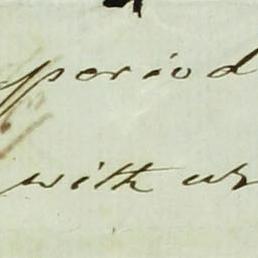 period
with us